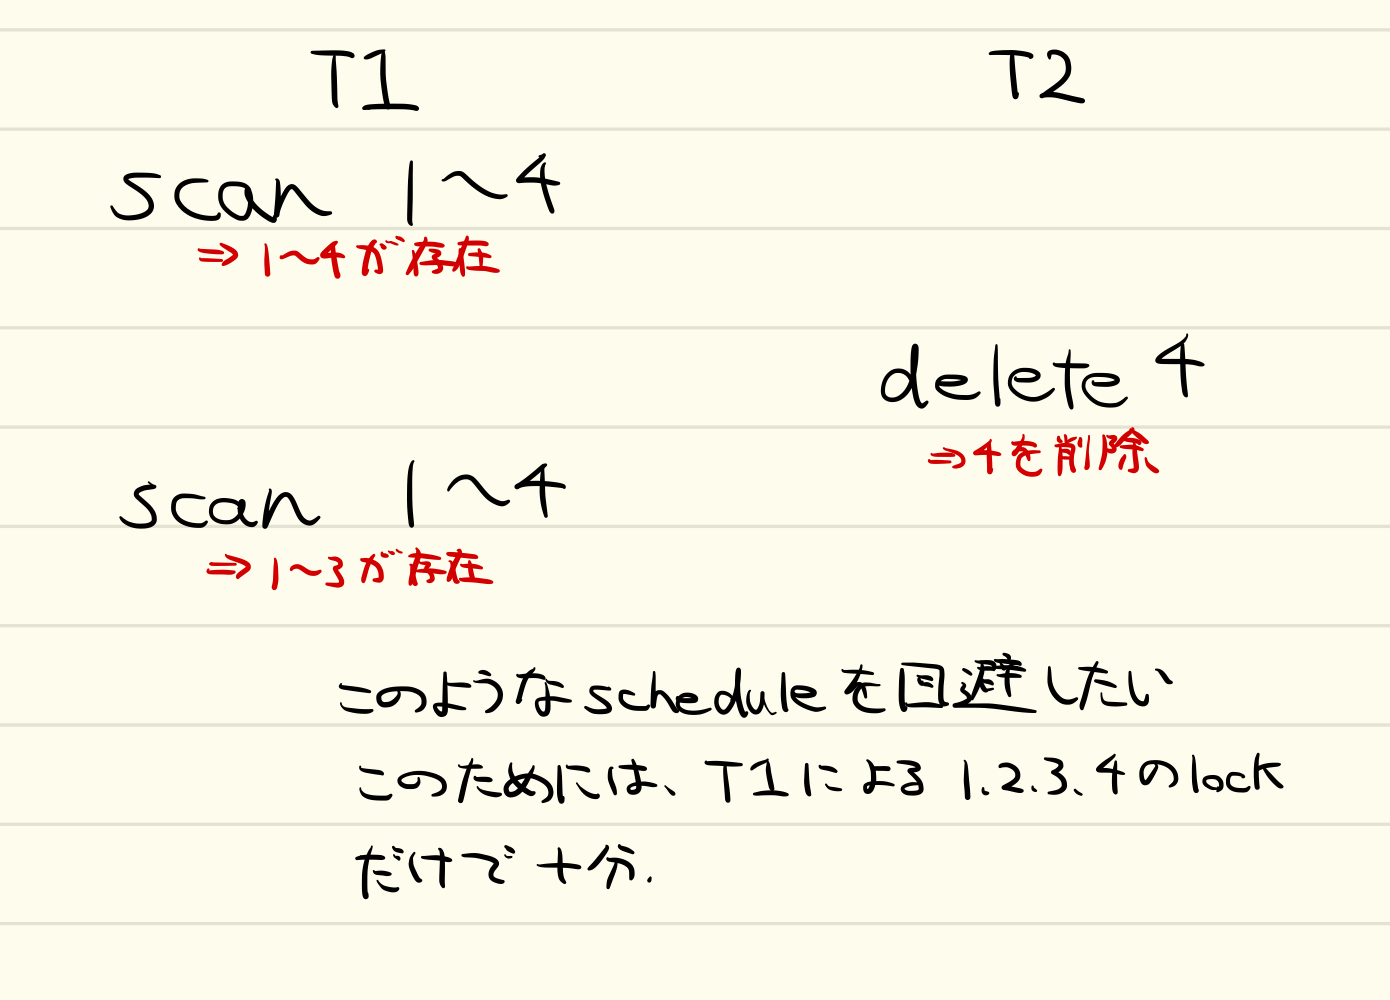 T1
T2
scan 1〜4
⇒ 1〜4が存在
delete 4
⇒4を削除
scan 1〜4
⇒ 1〜3が存在
このようなscheduleを回避したい
このためには、T1による 1.2.3.4のlock
だけで十分.